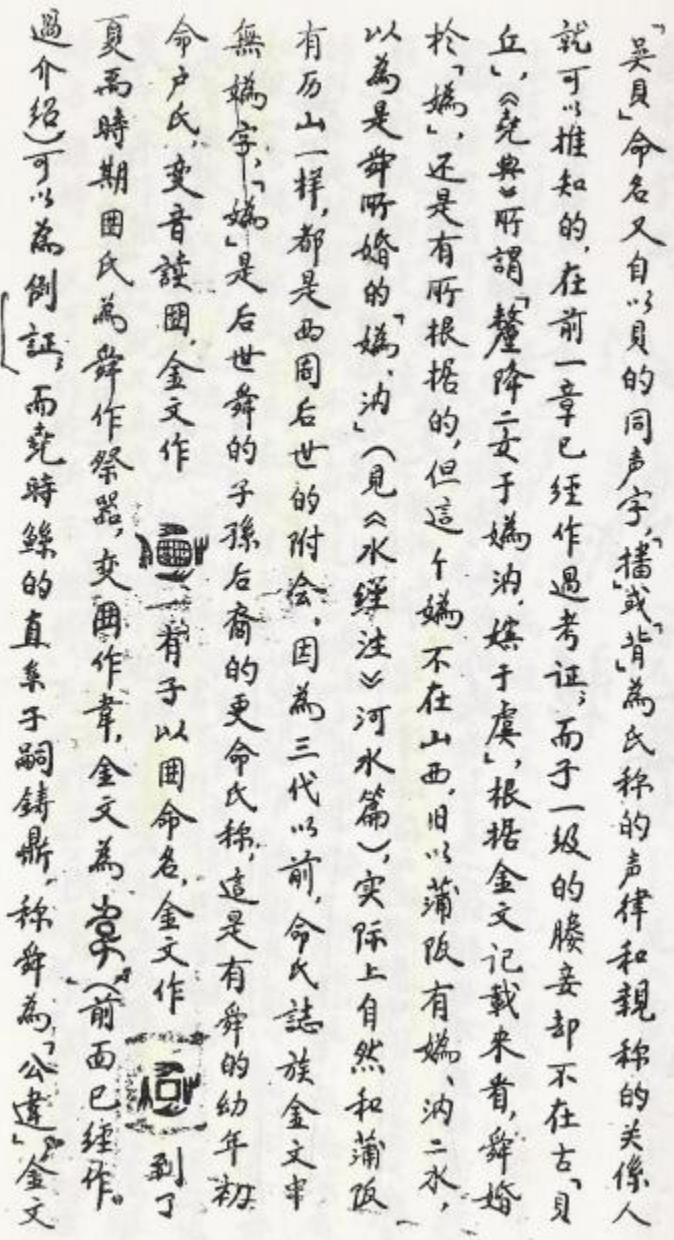 「吳貝」命名又自以貝的同声字，「播」或「背」為氏称的声律和親称的关係人
就可以推知的，在前一章已經作過考证；而子一级的媵妾却不在古「貝
丘」，《堯典》所謂「釐降二女于媯汭，嫔于虞」，根据金文记载来看，舜婚
於「媯」，还是有所根据的，但這个媯不在山西，旧以蒲阪有媯、汭二水，
以為是舜所婚的「媯、汭」（見《水經注》河水篇），实际上自然和蒲阪
有历山一样，都是西周后世的附会，因為三代以前，命氏誌族金文中
無媯字，「媯」是后世舜的子孫后裔的更命氏称，這是有舜的幼年初
命户氏，变音讀囲，金文作 有子以囲命名，金文作 到了
夏禹時期囲氏為舜作祭器，变囲作韋，金文為 （前面已經作。
過介绍）可以為例証；而堯時鯀的直系子嗣鋳鼎，称舜為「公違」金文